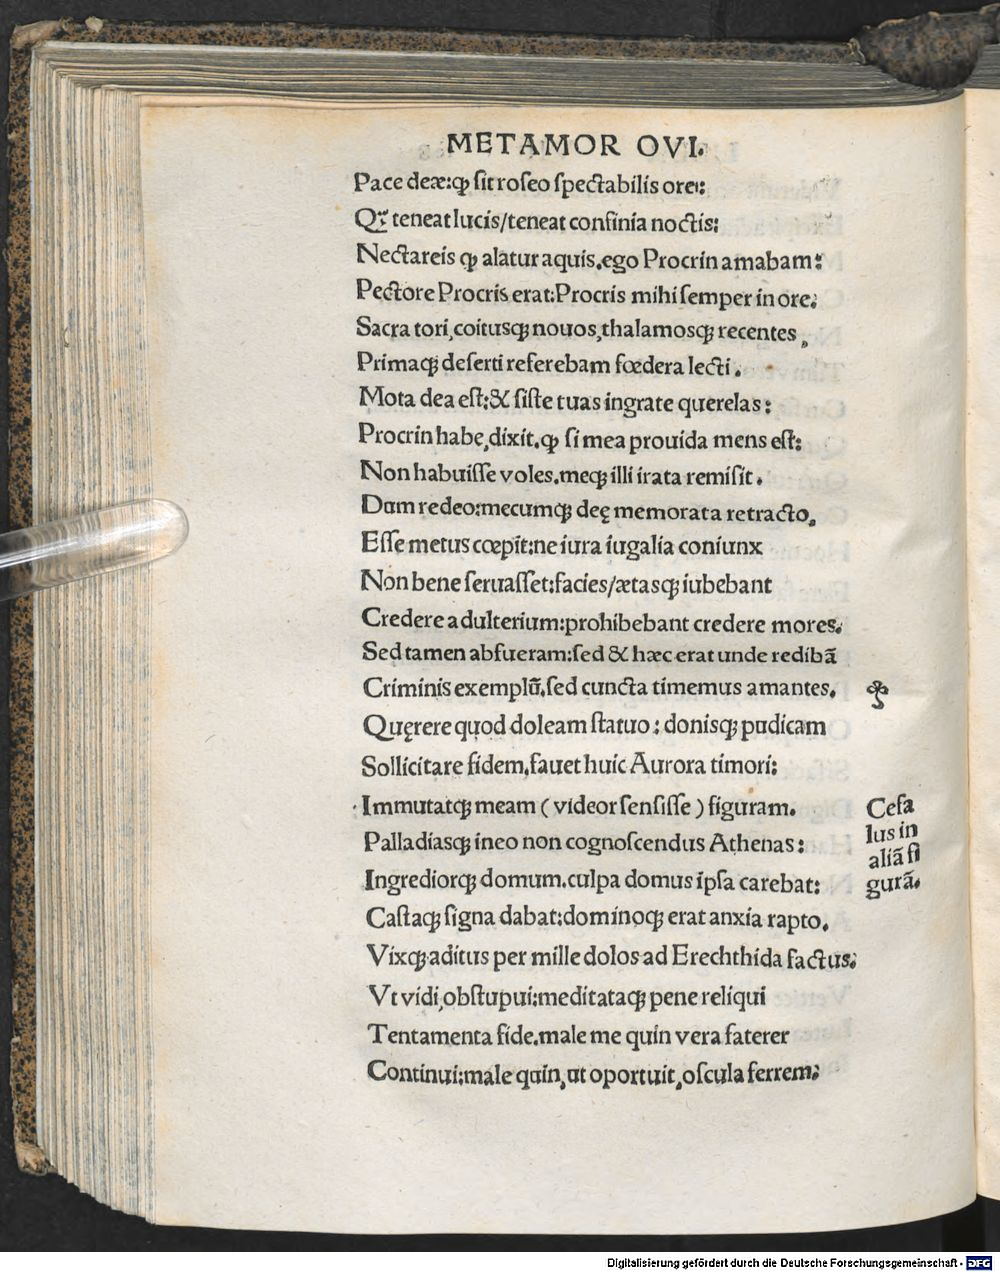 METAMOR OVI.
Pace deæ:ꝙ sit roseo spectabilis ore:
Qꝫ teneat lucis/teneat confinia noctis:
Nectareis ꝙ alatur aquis.ego Procrin amabam:
Pectore Procris erat:Procris mihi semper in ore:
Sacra tori,coitusqꝫ nouos,thalamosqꝫ recentes,
Primaqꝫ deserti referebam fœdera lecti.
Mota dea est:& siste tuas ingrate querelas:
Procrin habe,dixit.ꝙ si mea prouida mens est:
Non habuisse voles.meqꝫ illi irata remisit.
Dum redeo:mecumqꝫ deę memorata retracto,
Esse metus cœpit:ne iura iugalia coniunx
Non bene seruasset:facies/ætasqꝫ iubebant
Credere adulterium:prohibebant credere mores:
Sed tamen absueram:sed & hæc erat unde redibã
Criminis exemplũ.sed cuncta timemus amantes.
Quęrere quod doleam statuo: donisqꝫ pudicam
Sollicitare fidem.fauet huic Aurora timori:
Immutatqꝫ meam (videor sensisse) figuram.
Palladiasqꝫ ineo non cognoscendus Athenas:
Ingrediorqꝫ domum.culpa domus ipsa carebat:
Castaqꝫ signa dabat:dominoqꝫ erat anxia rapto.
Vixqꝫ aditus per mille dolos ad Erechthida factus:
Vt vidi,obstupui:meditataqꝫ pene reliqui
Tentamenta fide.male me quin vera faterer
Continui:male quin,ut oportuit,oscula ferrem:
Cefa
lus in
aliã fi
gurã.
Digitalisierung gefördert durch die Deutsche Forschungsgemeinschaft - DFG